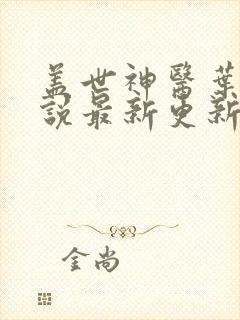 盖世神醫葉
說最新更新
金尚